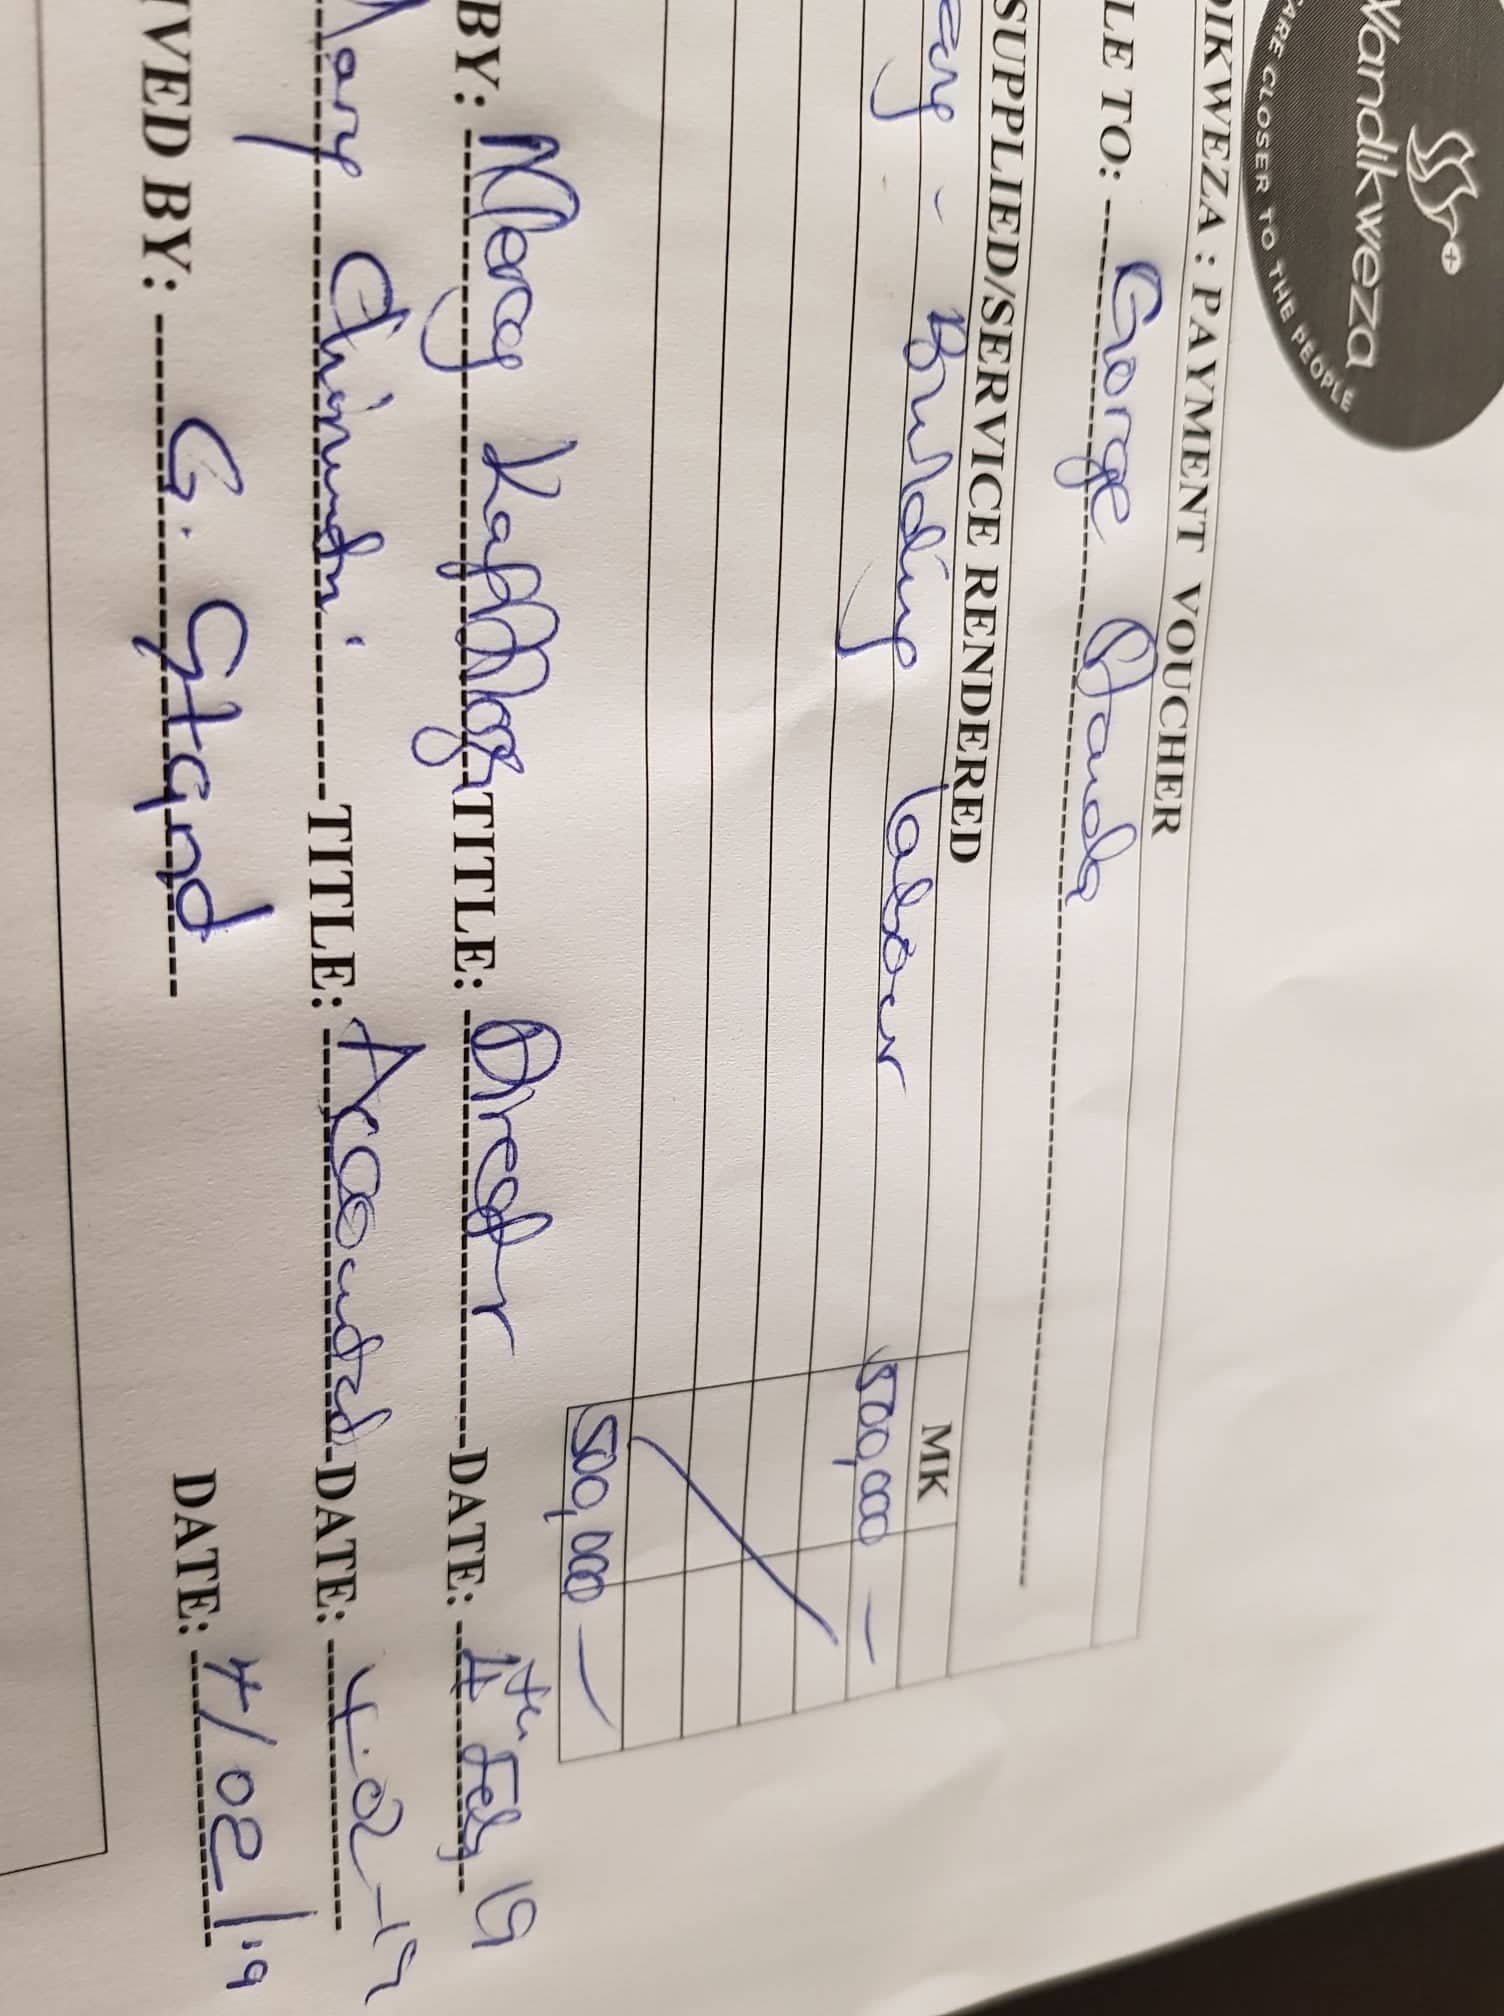 Wandikweza
CARE CLOSER TO THE PEOPLE
DIKWEZA : PAYMENT VOUCHER
LE TO: George
SUPPLIED/SERVICE RENDERED MK
- Building labour 500,000 -
500,000 -
BY: Mercy TITLE: Director DATE: 4th Feb 19
Mary TITLE: Accountant DATE: 4-02-19
IVED BY: G. Stand DATE: 4/02/19